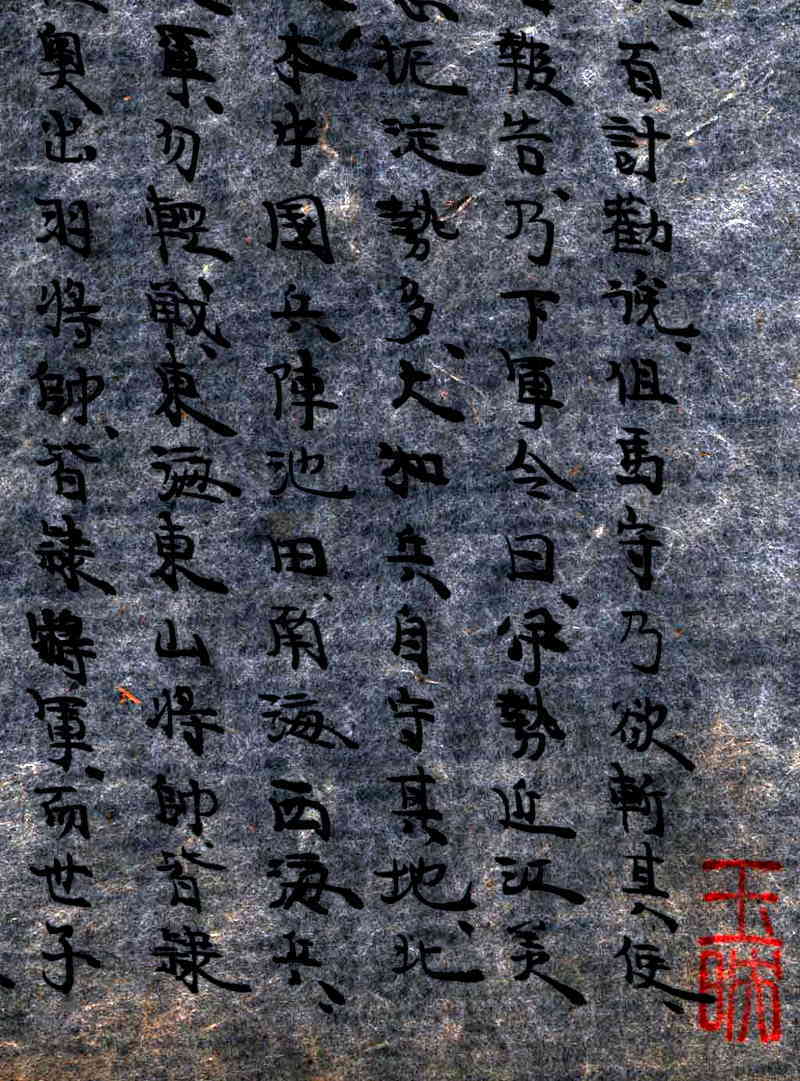 百計勸說、但馬守乃欲斬其使、
報告、乃下軍令曰、伊勢近江美
扼淀勢多、大和兵自守其地、北
本中国兵陣池田、南海西海兵、
軍、勿輕戰、東海東山將帥皆隷
奥出羽將帥、皆隷將軍、而世子